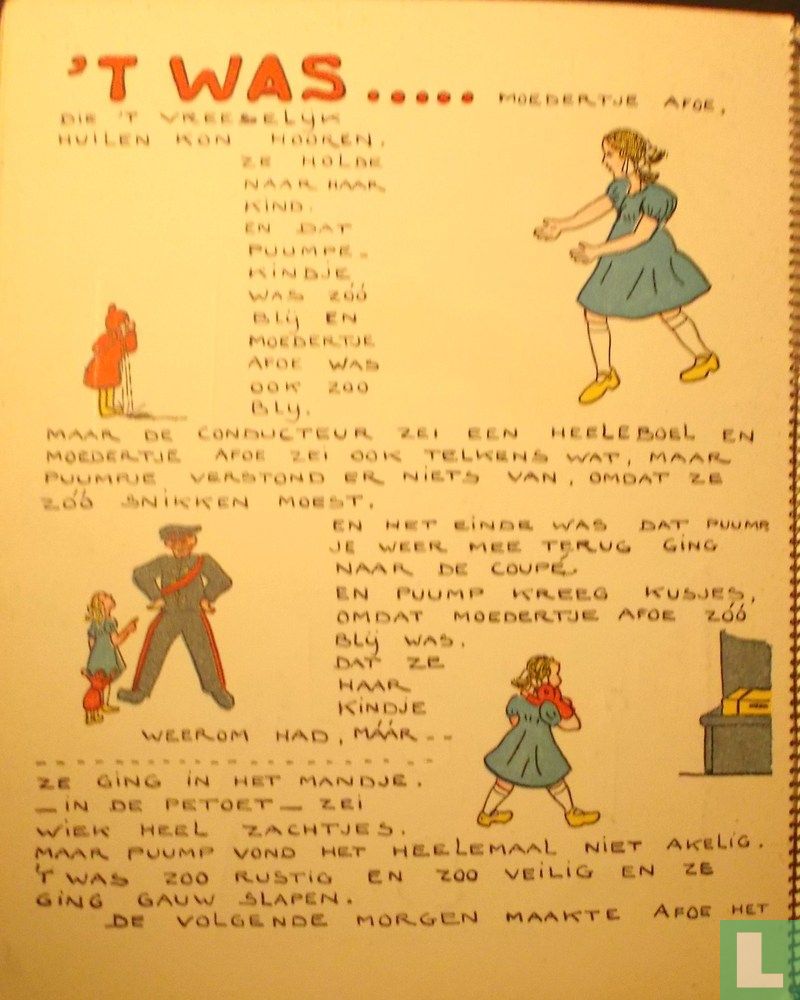 'T WAS ..... MOEDERTJE AFOE,
DIE 'T VREESELIJK
HUILEN KON HOOREN.
ZE HOLDE
NAAR HAAR
KIND.
EN DAT
PUUMPE-
KINDJE
WAS ZÓÓ
BLIJ EN
MOEDERTJE
AFOE WAS
OOK ZOO
BLIJ.
MAAR DE CONDUCTEUR ZEI EEN HEELEBOEL EN
MOEDERTJE AFOE ZEI OOK TELKENS WAT, MAAR
PUUMPJE VERSTOND ER NIETS VAN, OMDAT ZE
ZÓÓ SNIKKEN MOEST.
EN HET EINDE WAS DAT PUUMP
JE WEER MEE TERUG GING
NAAR DE COUPÉ.
EN PUUMP KREEG KUSJES,
OMDAT MOEDERTJE AFOE ZÓÓ
BLIJ WAS.
DAT ZE
HAAR
KINDJE
WEEROM HAD, MÁÁR --
ZE GING IN HET MANDJE.
— IN DE PETOET — ZEI
WIEK HEEL ZACHTJES.
MAAR PUUMP VOND HET HEELEMAAL NIET AKELIG.
'T WAS ZOO RUSTIG EN ZOO VEILIG EN ZE
GING GAUW SLAPEN.
DE VOLGENDE MORGEN MAAKTE AFOE HET
L